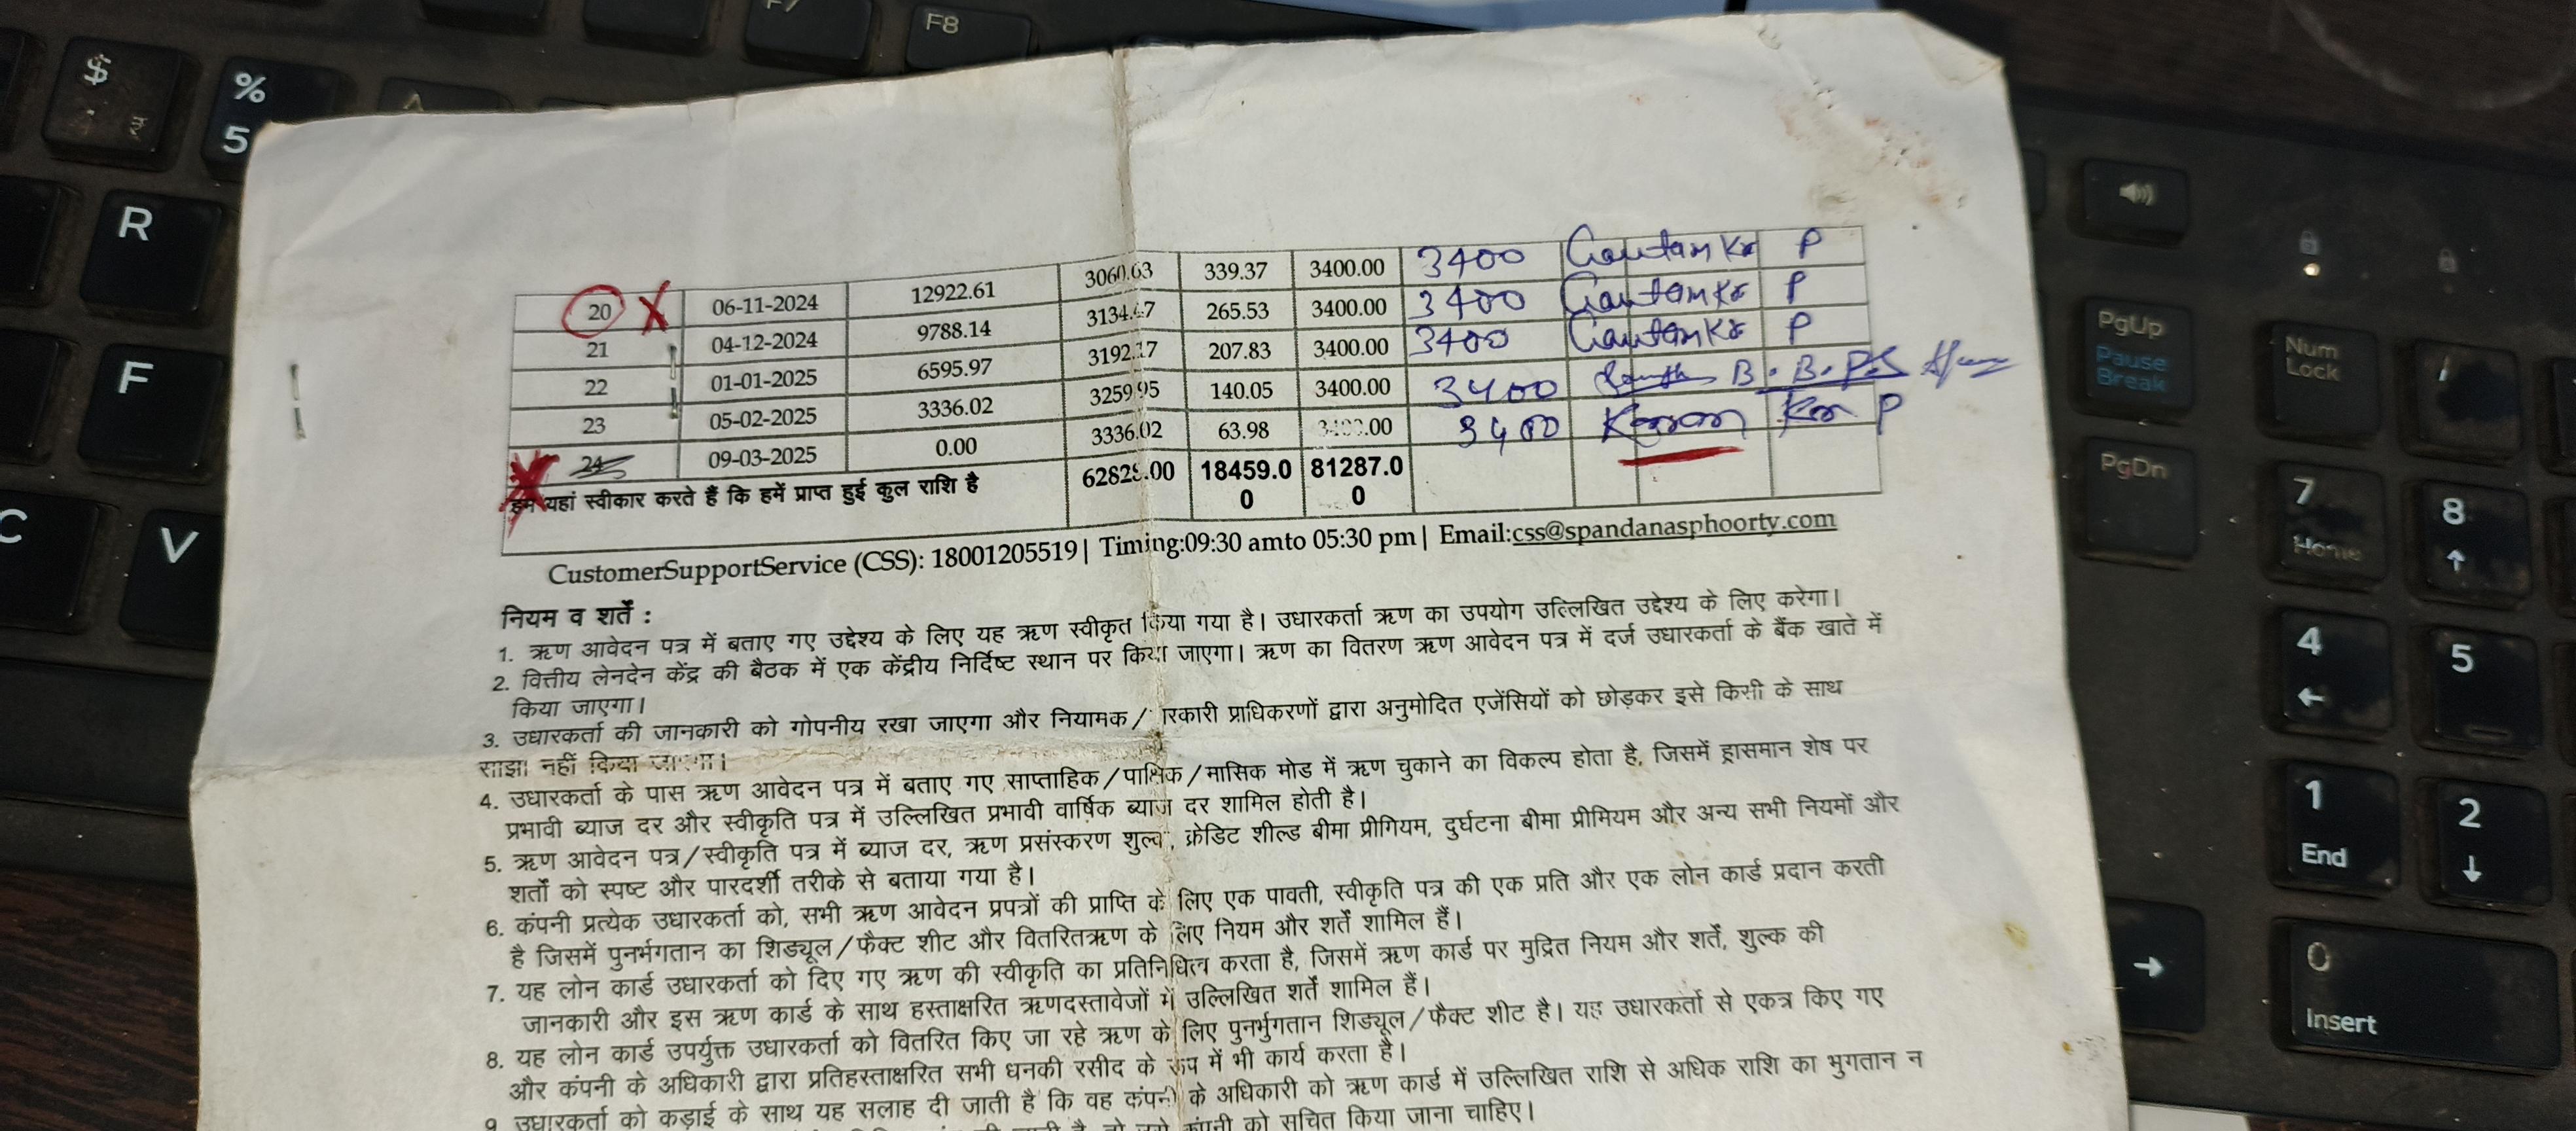 $
%
5
F7
F8
R
F
C
V
PgUp
Pause
Break
PgDn
Num
Lock
7
Home
8
4
5
1
End
2
0
Insert
20 X 06-11-2024 12922.61 3060.63 339.37 3400.00 3400 Gautam Kr P
21 04-12-2024 9788.14 3134.47 265.53 3400.00 3400 Gautam Kr P
22 01-01-2025 6595.97 3192.17 207.83 3400.00 3400 Gautam Kr P
23 05-02-2025 3336.02 3259.95 140.05 3400.00 3400 B.B.P.S
24 09-03-2025 0.00 3336.02 63.98 3400.00 3400 Kr P
हम यहां स्वीकार करते हैं कि हमें प्राप्त हुई कुल राशि है 62828.00 18459.00 81287.00
CustomerSupportService (CSS): 18001205519| Timing:09:30 amto 05:30 pm| Email:css@spandanasphoorty.com
नियम व शर्तें :
1. ऋण आवेदन पत्र में बताए गए उद्देश्य के लिए यह ऋण स्वीकृत किया गया है। उधारकर्ता ऋण का उपयोग उल्लिखित उद्देश्य के लिए करेगा।
2. वित्तीय लेनदेन केंद्र की बैठक में एक केंद्रीय निर्दिष्ट स्थान पर किया जाएगा। ऋण का वितरण ऋण आवेदन पत्र में दर्ज उधारकर्ता के बैंक खाते में
किया जाएगा।
3. उधारकर्ता की जानकारी को गोपनीय रखा जाएगा और नियामक/सरकारी प्राधिकरणों द्वारा अनुमोदित एजेंसियों को छोड़कर इसे किसी के साथ
साझा नहीं किया जाएगा।
4. उधारकर्ता के पास ऋण आवेदन पत्र में बताए गए साप्ताहिक/पाक्षिक/मासिक मोड में ऋण चुकाने का विकल्प होता है, जिसमें ह्रासमान शेष पर
प्रभावी ब्याज दर और स्वीकृति पत्र में उल्लिखित प्रभावी वार्षिक ब्याज दर शामिल होती है।
5. ऋण आवेदन पत्र/स्वीकृति पत्र में ब्याज दर, ऋण प्रसंस्करण शुल्क, क्रेडिट शील्ड बीमा प्रीमियम, दुर्घटना बीमा प्रीमियम और अन्य सभी नियमों और
शर्तों को स्पष्ट और पारदर्शी तरीके से बताया गया है।
6. कंपनी प्रत्येक उधारकर्ता को, सभी ऋण आवेदन प्रपत्रों की प्राप्ति के लिए एक पावती, स्वीकृति पत्र की एक प्रति और एक लोन कार्ड प्रदान करती
है जिसमें पुनर्भगतान का शिड्यूल/फैक्ट शीट और वितरितऋण के लिए नियम और शर्तें शामिल हैं।
7. यह लोन कार्ड उधारकर्ता को दिए गए ऋण की स्वीकृति का प्रतिनिधित्व करता है, जिसमें ऋण कार्ड पर मुद्रित नियम और शर्तें, शुल्क की
जानकारी और इस ऋण कार्ड के साथ हस्ताक्षरित ऋणदस्तावेजों में उल्लिखित शर्तें शामिल हैं।
8. यह लोन कार्ड उपर्युक्त उधारकर्ता को वितरित किए जा रहे ऋण के लिए पुनर्भुगतान शिड्यूल/फैक्ट शीट है। यह उधारकर्ता से एकत्र किए गए
और कंपनी के अधिकारी द्वारा प्रतिहस्ताक्षरित सभी धनकी रसीद के रूप में भी कार्य करता है।
9. उधारकर्ता को कड़ाई के साथ यह सलाह दी जाती है कि वह कंपनी के अधिकारी को ऋण कार्ड में उल्लिखित राशि से अधिक राशि का भुगतान न
कंपनी को सूचित किया जाना चाहिए।